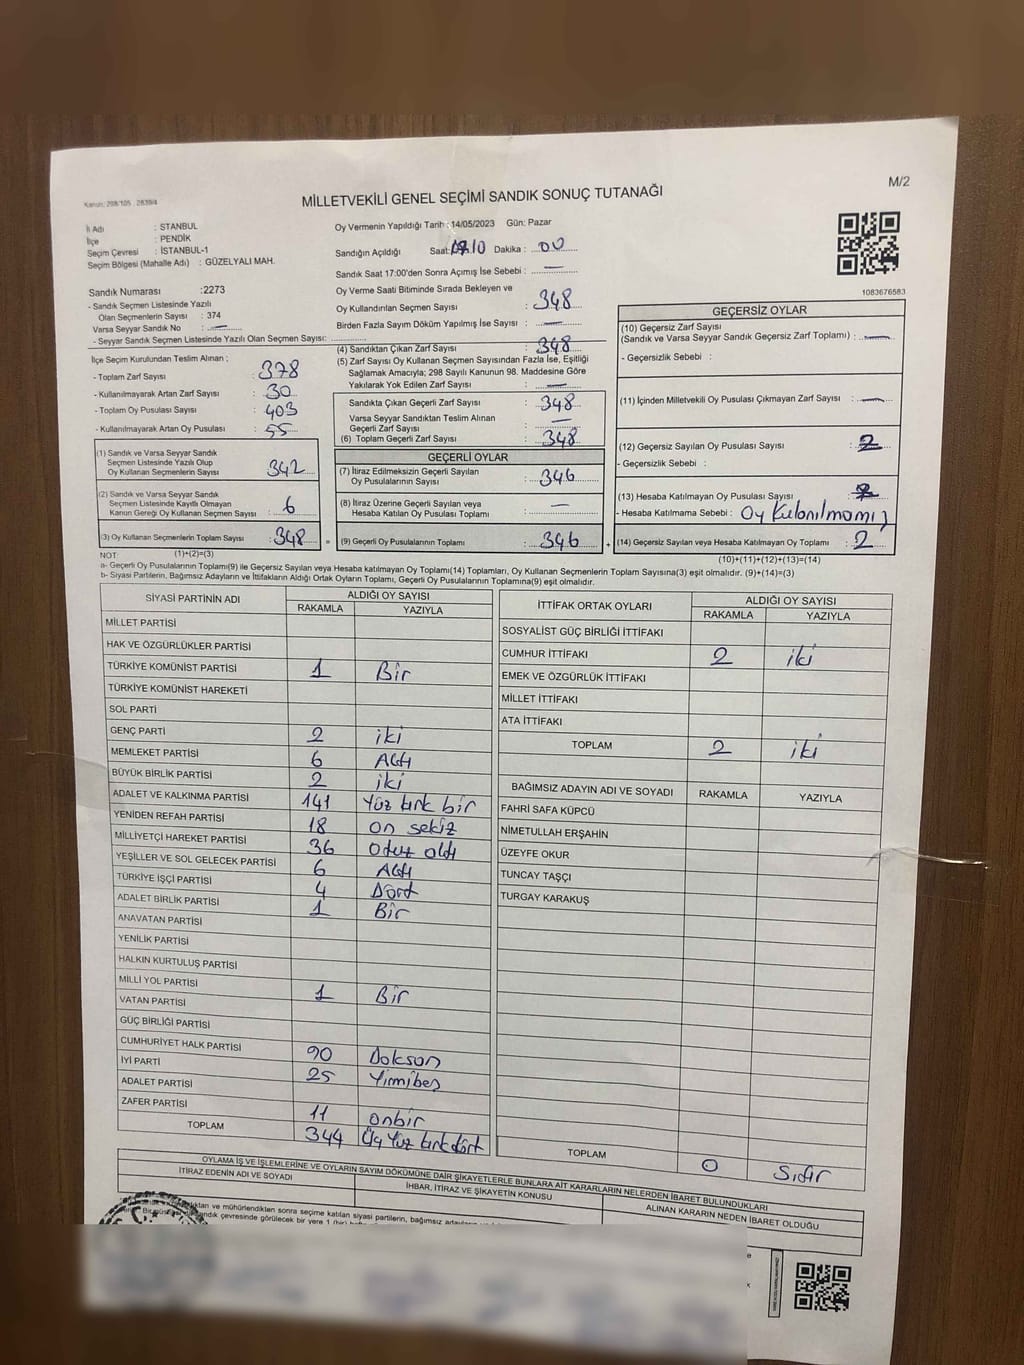 M/2
Kanun: 298/105 , 2839/4
MİLLETVEKİLİ GENEL SEÇİMİ SANDIK SONUÇ TUTANAĞI
İl Adı : STANBUL
İlçe : PENDİK
Seçim Çevresi : İSTANBUL-1
Seçim Bölgesi (Mahalle Adı) : GÜZELYALI MAH.
Sandık Numarası :2273
- Sandık Seçmen Listesinde Yazılı
Olan Seçmenlerin Sayısı : 374
Varsa Seyyar Sandık No : —
- Seyyar Sandık Seçmen Listesinde Yazılı Olan Seçmen Sayısı:
Oy Vermenin Yapıldığı Tarih : 14/05/2023 Gün: Pazar
Sandığın Açıldığı Saat: 10 Dakika : 00
Sandık Saat 17:00'den Sonra Açımış İse Sebebi : —
Oy Verme Saati Bitiminde Sırada Bekleyen ve
Oy Kullandırılan Seçmen Sayısı : 348
Birden Fazla Sayım Döküm Yapılmış İse Sayısı : —
1083676583
İlçe Seçim Kurulundan Teslim Alınan ;
- Toplam Zarf Sayısı : 378
- Kullanılmayarak Artan Zarf Sayısı : 30
- Toplam Oy Pusulası Sayısı : 403
- Kullanılmayarak Artan Oy Pusulası : 55
(1) Sandık ve Varsa Seyyar Sandık
Seçmen Listesinde Yazılı Olup
Oy Kullanan Seçmenlerin Sayısı : 342
(2) Sandık ve Varsa Seyyar Sandık
Seçmen Listesinde Kayıtlı Olmayan
Kanun Gereği Oy Kullanan Seçmen Sayısı : 6
(3) Oy Kullanan Seçmenlerin Toplam Sayısı : 348 =
(4) Sandıktan Çıkan Zarf Sayısı : 348
(5) Zarf Sayısı Oy Kullanan Seçmen Sayısından Fazla İse, Eşitliği
Sağlamak Amacıyla; 298 Sayılı Kanunun 98. Maddesine Göre
Yakılarak Yok Edilen Zarf Sayısı : —
Sandıkta Çıkan Geçerli Zarf Sayısı : 348
Varsa Seyyar Sandıktan Teslim Alınan
Geçerli Zarf Sayısı : —
(6) Toplam Geçerli Zarf Sayısı : 348
GEÇERLİ OYLAR
(7) İtiraz Edilmeksizin Geçerli Sayılan
Oy Pusulalarının Sayısı : 346
(8) İtiraz Üzerine Geçerli Sayılan veya
Hesaba Katılan Oy Pusulası Toplamı : —
(9) Geçerli Oy Pusulalarının Toplamı : 346 +
GEÇERSİZ OYLAR
(10) Geçersiz Zarf Sayısı
(Sandık ve Varsa Seyyar Sandık Geçersiz Zarf Toplamı) : —
- Geçersizlik Sebebi :
(11) İçinden Milletvekili Oy Pusulası Çıkmayan Zarf Sayısı : —
(12) Geçersiz Sayılan Oy Pusulası Sayısı : 2
- Geçersizlik Sebebi :
(13) Hesaba Katılmayan Oy Pusulası Sayısı :
- Hesaba Katılmama Sebebi : Oy Kulanılmamış
(14) Geçersiz Sayılan veya Hesaba Katılmayan Oy Toplamı : 2
NOT: (1)+(2)=(3)
(10)+(11)+(12)+(13)=(14)
a- Geçerli Oy Pusulalarının Toplamı(9) ile Geçersiz Sayılan veya Hesaba katılmayan Oy Toplamı(14) Toplamları, Oy Kullanan Seçmenlerin Toplam Sayısına(3) eşit olmalıdır. (9)+(14)=(3)
b- Siyasi Partilerin, Bağımsız Adayların ve İttifakların Aldığı Ortak Oyların Toplamı, Geçerli Oy Pusulalarının Toplamına(9) eşit olmalıdır.
SİYASİ PARTİNİN ADI ALDIĞI OY SAYISI
RAKAMLA YAZIYLA
MİLLET PARTİSİ
HAK VE ÖZGÜRLÜKLER PARTİSİ
TÜRKİYE KOMÜNİST PARTİSİ 1 Bir
TÜRKİYE KOMÜNİST HAREKETİ
SOL PARTİ
GENÇ PARTİ 2 iki
MEMLEKET PARTİSİ 6 Altı
BÜYÜK BİRLİK PARTİSİ 2 iki
ADALET VE KALKINMA PARTİSİ 141 Yüz kırk bir
YENİDEN REFAH PARTİSİ 18 on sekiz
MİLLİYETÇİ HAREKET PARTİSİ 36 Otuz altı
YEŞİLLER VE SOL GELECEK PARTİSİ 6 Altı
TÜRKİYE İŞÇİ PARTİSİ 4 Dört
ADALET BİRLİK PARTİSİ 1 Bir
ANAVATAN PARTİSİ
YENİLİK PARTİSİ
HALKIN KURTULUŞ PARTİSİ
MİLLİ YOL PARTİSİ 1 Bir
VATAN PARTİSİ
GÜÇ BİRLİĞİ PARTİSİ
CUMHURİYET HALK PARTİSİ 90 Doksan
İYİ PARTİ 25 Yirmibeş
ADALET PARTİSİ
ZAFER PARTİSİ 11 onbir
TOPLAM 344 Üç Yüz kırk dört
İTTİFAK ORTAK OYLARI ALDIĞI OY SAYISI
RAKAMLA YAZIYLA
SOSYALİST GÜÇ BİRLİĞİ İTTİFAKI
CUMHUR İTTİFAKI 2 iki
EMEK VE ÖZGÜRLÜK İTTİFAKI
MİLLET İTTİFAKI
ATA İTTİFAKI
TOPLAM 2 iki
BAĞIMSIZ ADAYIN ADI VE SOYADI RAKAMLA YAZIYLA
FAHRİ SAFA KÜPCÜ
NİMETULLAH ERŞAHİN
ÜZEYFE OKUR
TUNCAY TAŞÇI
TURGAY KARAKUŞ
TOPLAM 0 Sıfır
OYLAMA İŞ VE İŞLEMLERİNE VE OYLARIN SAYIM DÖKÜMÜNE DAİR ŞİKAYETLERLE BUNLARA AİT KARARLARIN NELERDEN İBARET BULUNDUKLARI
İTİRAZ EDENİN ADI VE SOYADI İHBAR, İTİRAZ VE ŞİKAYETİN KONUSU ALINAN KARARIN NEDEN İBARET OLDUĞU
ve mühürlendikten sonra seçime katılan siyasi partilerin, bağımsız
sandık çevresinde görülecek bir yere 1 (bir)